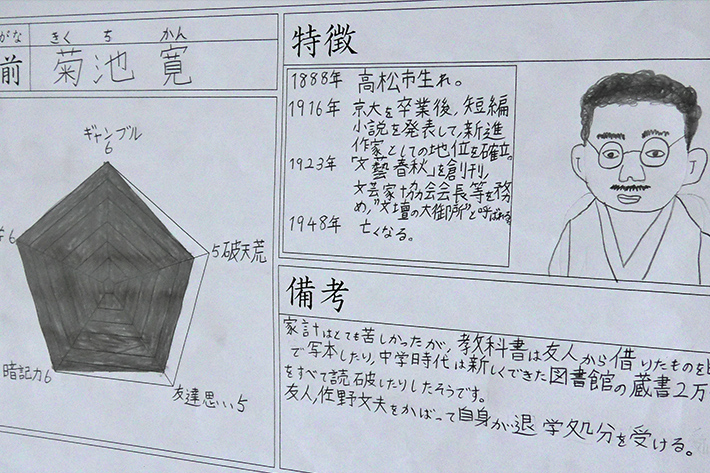 がな きくち かん
前 菊池 寛
ギャンブル
6
6
5 破天荒
暗記力 6
友達思い 5
特徴
1888年 高松市生れ。
1916年 京大を卒業後、短編
小説を発表して、新進
作家としての地位を確立。
1923年 「文藝春秋」を創刊,
文芸家協会会長等を務
め,"文壇の大御所"と呼ばれる
1948年 亡くなる。
備考
家計はとても苦しかったが、教科書は友人から借りたものを
で写本したり,中学時代は新しくできた図書館の蔵書2万
をすべて読破したりしたそうです。
友人,佐野文夫をかばって自身が退学処分を受ける。